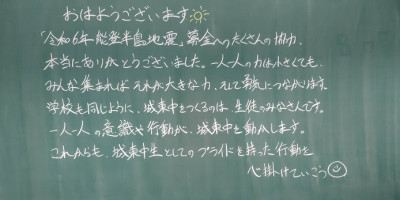 おはようございます
「令和6年能登半島地震」募金へのたくさんの協力、
本当にありがとうございました。一人一人の力は小さくても、
みんな集まれば それが大きな力、そして勇気につながります。
学校も同じように、城東中をつくるのは、生徒のみなさんです。
一人一人の意識や行動が、城東中を動かします。
これからも、城東中生としてのプライドを持った行動を
心掛けていこう